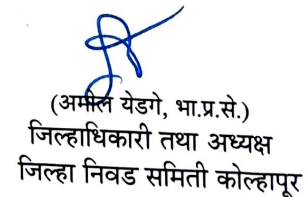 (अमोल येडगे, भा.प्र.से.)
जिल्हाधिकारी तथा अध्यक्ष
जिल्हा निवड समिती कोल्हापूर